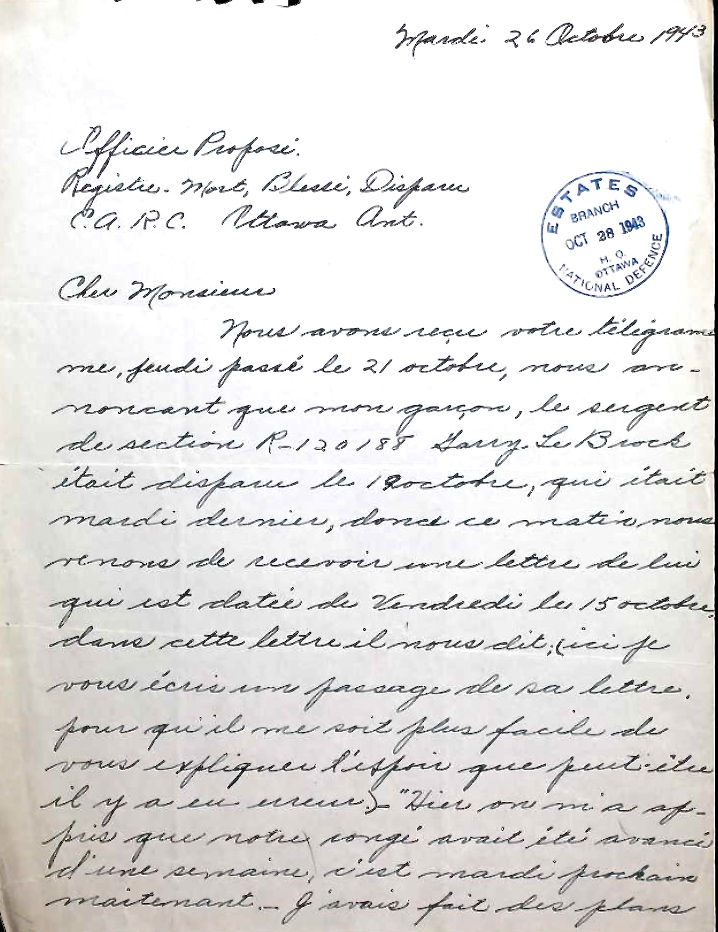 Mardi 26 Octobre 1943
Officier Proposé.
Registre. Mort, Blessé, Disparu
C.A.R.C. Ottawa Ont.
ESTATES
BRANCH
OCT 28 1943
H.Q.
OTTAWA
NATIONAL DEFENCE
Cher Monsieur
Nous avons reçu votre téligram
me, jeudi passé le 21 octobre, nous an-
noncant que mon garçon, le sergent
de section R-120188 Garry Le Brock
était disparu le 19 octobre, qui était
mardi dernier, donc ce matin nous
venons de recevoir une lettre de lui
qui est datée de Vendredi le 15 octobre,
dans cette lettre il nous dit; (ici je
vous écris un passage de sa lettre.
pour qu'il me soit plus facile de
vous expliquer l'espoir que peut-être
il y a eu erreur.) - "Hier on m'a ap-
pris que notre congé avait été avancé
d'une semaine, c'est mardi prochain
maitenant. - J'avais fait des plans